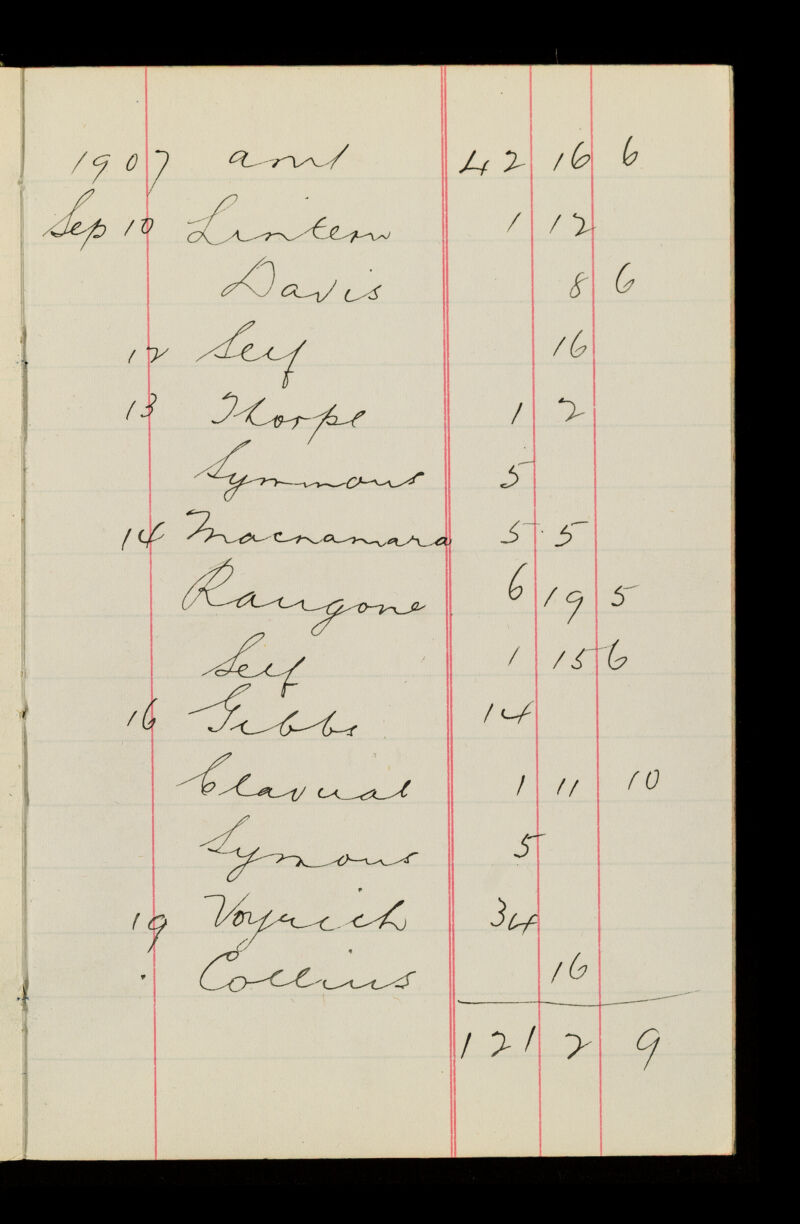 1907 amt 42 16 6
Sep 10 Lintern 1 12
Davis 8 6
12 Self 16
13 Thorpe 1 2
Symmons 5
14 Macnamara 5 5
Raugone 6 19 5
Self 1 15 6
16 Gibbs 14
1 11 10
Symons 5
19 34
Collins 16
121 2 9